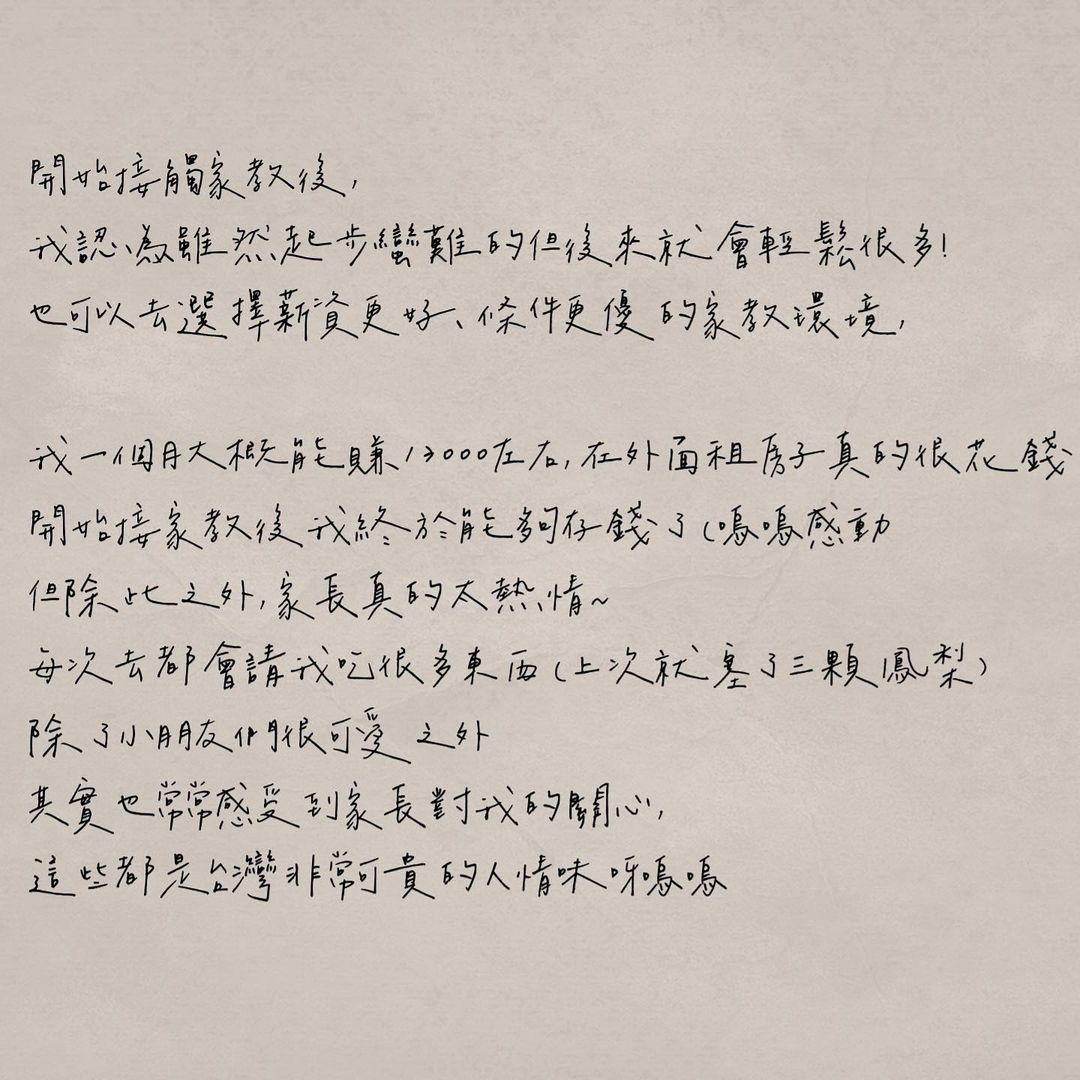 開始接觸家教後,
我認為雖然起步蠻難的但後來就會輕鬆很多!
也可以去選擇薪資更好、條件更優的家教環境,
我一個月大概能賺13000左右,在外面租房子真的很花錢
開始接家教後我終於能夠存錢了(嗚嗚感動
但除此之外,家長真的太熱情~
每次去都會請我吃很多東西(上次就塞了三顆鳳梨)
除了小朋友們很可愛之外
其實也常常感受到家長對我的關心,
這些都是台灣非常可貴的人情味呀嗚嗚